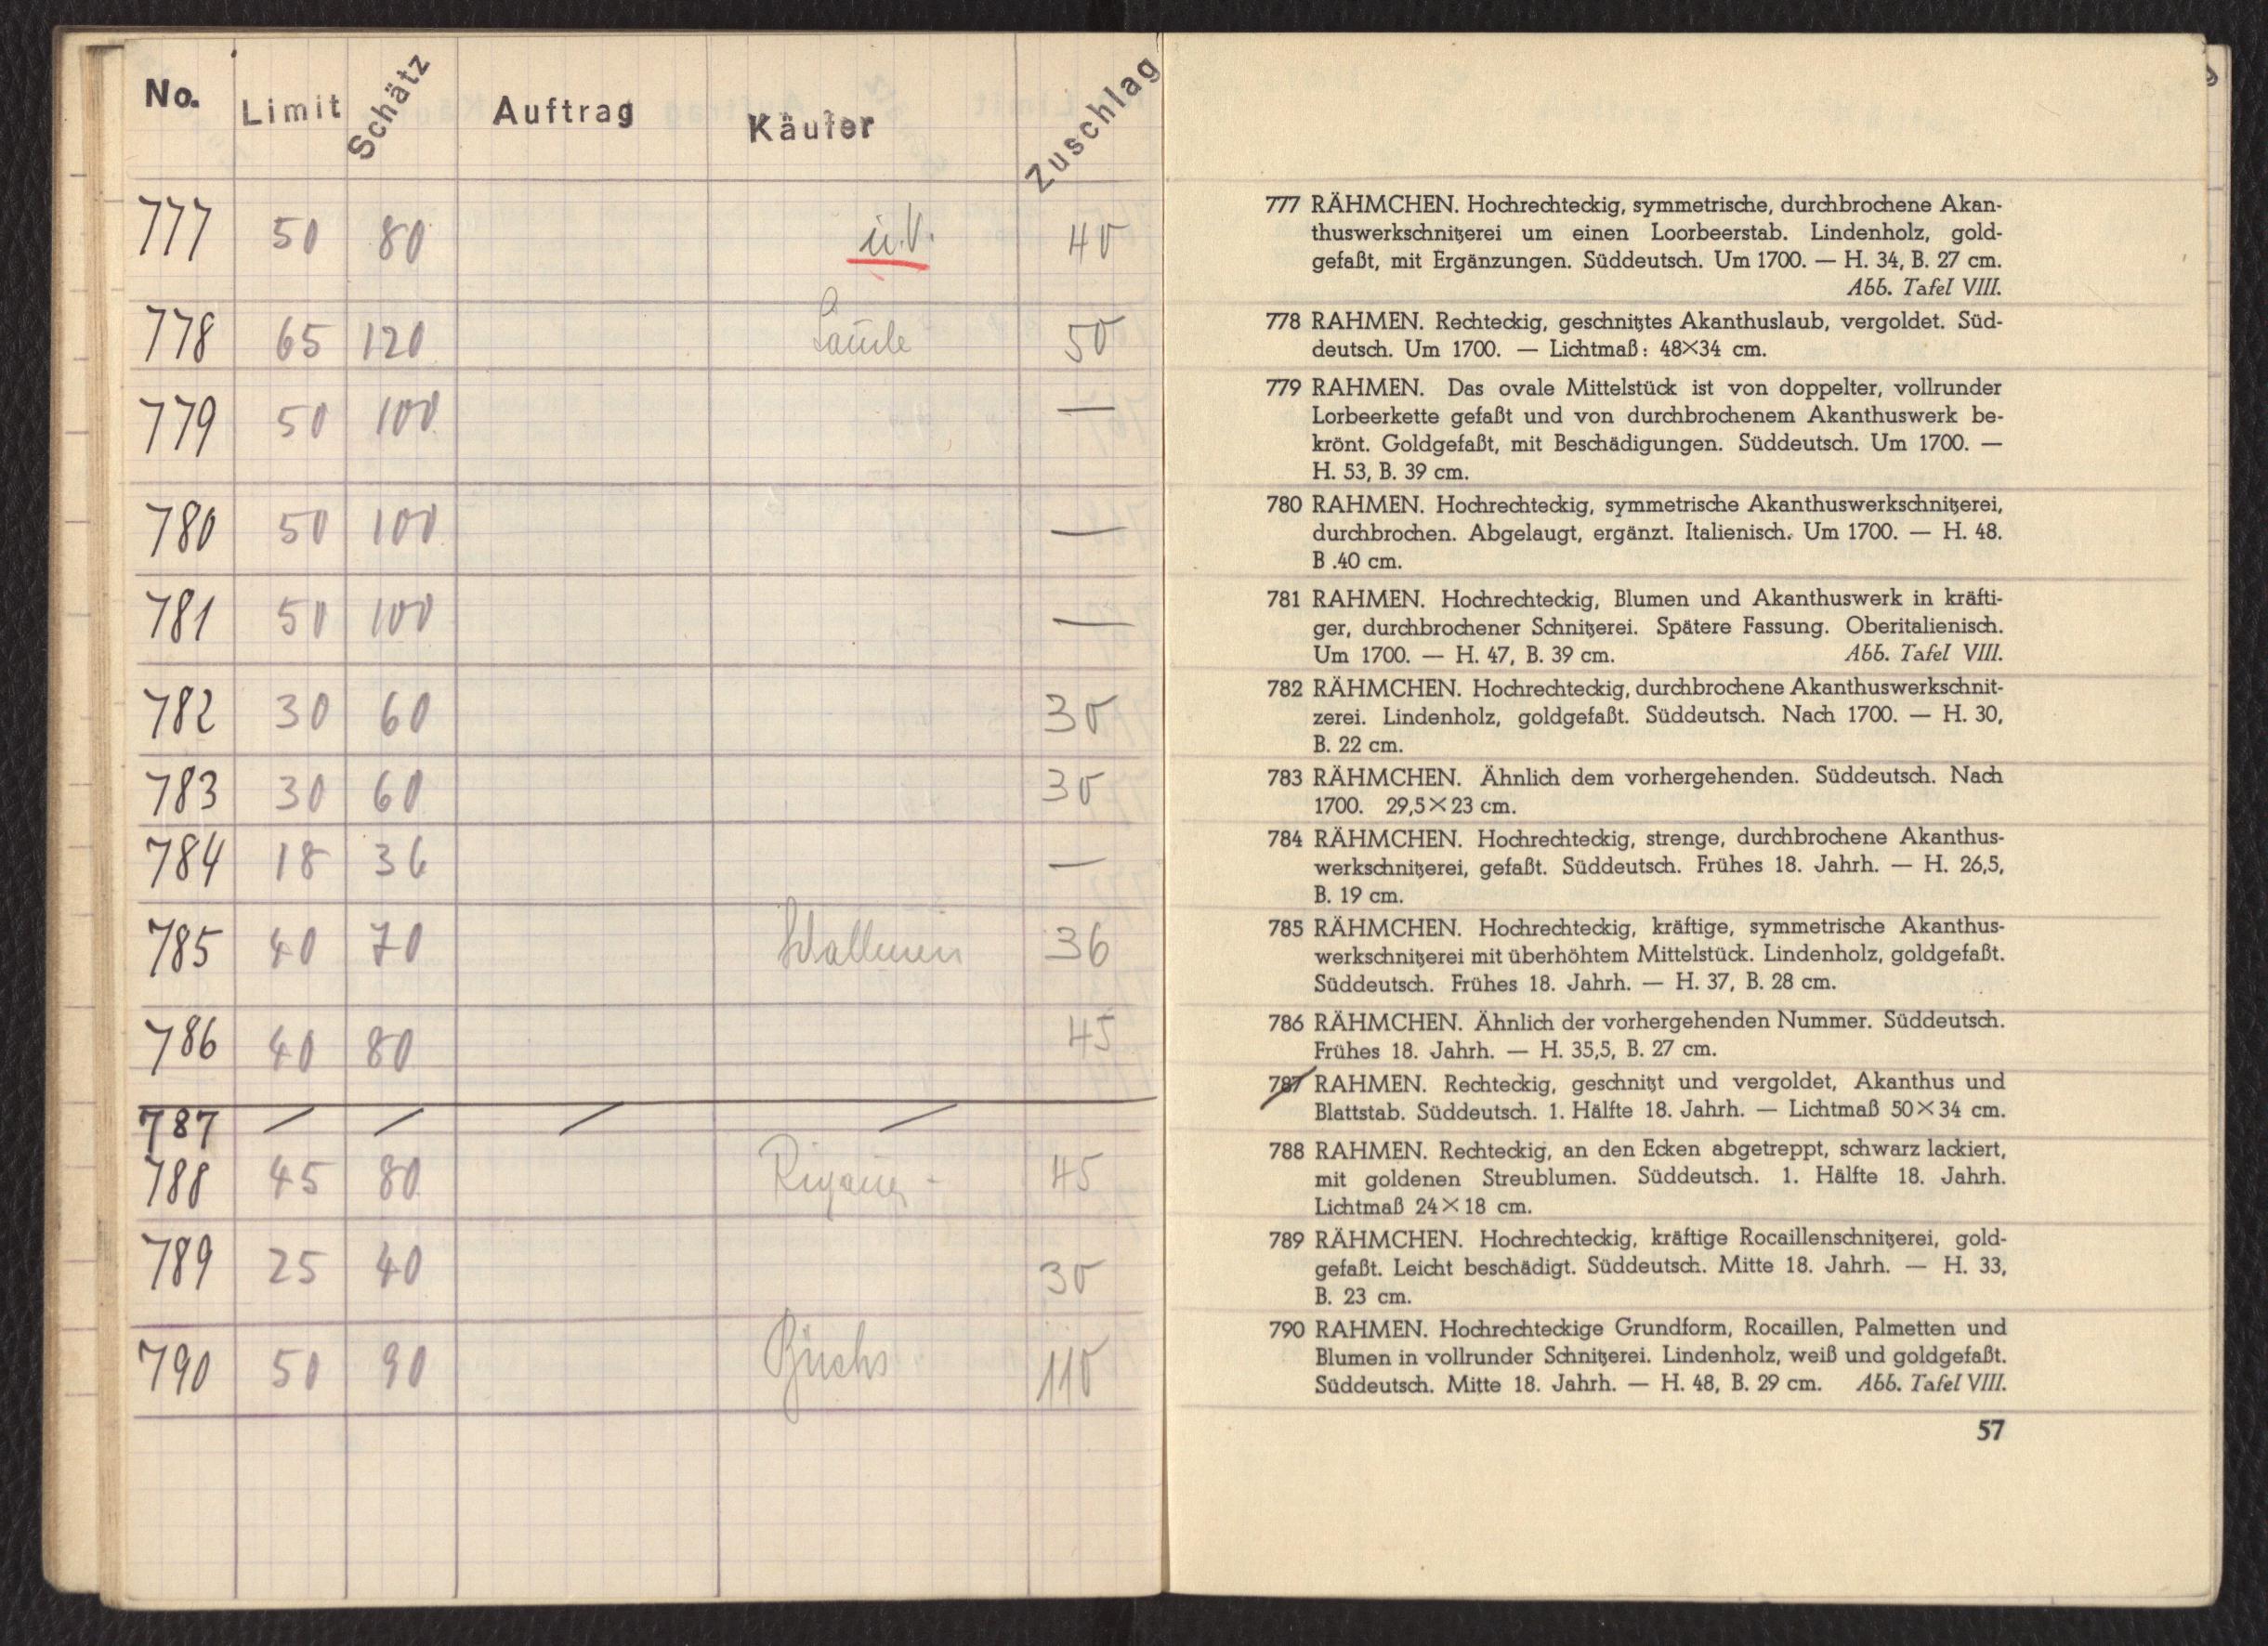 No. Limit Schätz Auftrag Käufer Zuschlag
777 50 80 ü.V. 40
778 65 120 50
779 50 100 —
780 50 100 —
781 50 100 —
782 30 60 30
783 30 60 30
784 18 36 —
785 40 70 36
786 40 80 45
787 / / / /
788 45 80 45
789 25 40 30
790 50 90 110
777 RÄHMCHEN. Hochrechteckig, symmetrische, durchbrochene Akan-
thuswerkschnitzerei um einen Loorbeerstab. Lindenholz, gold-
gefaßt, mit Ergänzungen. Süddeutsch. Um 1700. — H. 34, B. 27 cm.
Abb. Tafel VIII.
778 RAHMEN. Rechteckig, geschnitztes Akanthuslaub, vergoldet. Süd-
deutsch. Um 1700. — Lichtmaß: 48×34 cm.
779 RAHMEN. Das ovale Mittelstück ist von doppelter, vollrunder
Lorbeerkette gefaßt und von durchbrochenem Akanthuswerk be-
krönt. Goldgefaßt, mit Beschädigungen. Süddeutsch. Um 1700. —
H. 53, B. 39 cm.
780 RAHMEN. Hochrechteckig, symmetrische Akanthuswerkschnitzerei,
durchbrochen. Abgelaugt, ergänzt. Italienisch. Um 1700. — H. 48.
B .40 cm.
781 RAHMEN. Hochrechteckig, Blumen und Akanthuswerk in kräfti-
ger, durchbrochener Schnitzerei. Spätere Fassung. Oberitalienisch.
Um 1700. — H. 47, B. 39 cm. Abb. Tafel VIII.
782 RÄHMCHEN. Hochrechteckig, durchbrochene Akanthuswerkschnit-
zerei. Lindenholz, goldgefaßt. Süddeutsch. Nach 1700. — H. 30,
B. 22 cm.
783 RÄHMCHEN. Ähnlich dem vorhergehenden. Süddeutsch. Nach
1700. 29,5×23 cm.
784 RÄHMCHEN. Hochrechteckig, strenge, durchbrochene Akanthus-
werkschnitzerei, gefaßt. Süddeutsch. Frühes 18. Jahrh. — H. 26,5,
B. 19 cm.
785 RÄHMCHEN. Hochrechteckig, kräftige, symmetrische Akanthus-
werkschnitzerei mit überhöhtem Mittelstück. Lindenholz, goldgefaßt.
Süddeutsch. Frühes 18. Jahrh. — H. 37, B. 28 cm.
786 RÄHMCHEN. Ähnlich der vorhergehenden Nummer. Süddeutsch.
Frühes 18. Jahrh. — H. 35,5, B. 27 cm.
787 RAHMEN. Rechteckig, geschnitzt und vergoldet, Akanthus und
Blattstab. Süddeutsch. 1. Hälfte 18. Jahrh. — Lichtmaß 50×34 cm.
788 RAHMEN. Rechteckig, an den Ecken abgetreppt, schwarz lackiert,
mit goldenen Streublumen. Süddeutsch. 1. Hälfte 18. Jahrh.
Lichtmaß 24×18 cm.
789 RÄHMCHEN. Hochrechteckig, kräftige Rocaillenschnitzerei, gold-
gefaßt. Leicht beschädigt. Süddeutsch. Mitte 18. Jahrh. — H. 33,
B. 23 cm.
790 RAHMEN. Hochrechteckige Grundform, Rocaillen, Palmetten und
Blumen in vollrunder Schnitzerei. Lindenholz, weiß und goldgefaßt.
Süddeutsch. Mitte 18. Jahrh. — H. 48, B. 29 cm. Abb. Tafel VIII.
57